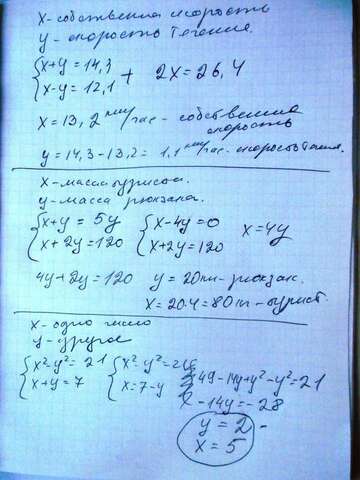 x-собственная скорость
y-скорость течения.
{x+y=14,3
x-y=12,1 + 2x=26,4
x=13,2 км/час - собственная скорость
y=14,3-13,2=1,1 км/час. скорость течения.
x-масса туриста.
y-масса рюкзака.
{x+y=5y
x+2y=120 {x-4y=0
x+2y=120 x=4y
4y+2y=120 y=20кг-рюкзак.
x=20.4=80кг-турист.
x-одно число
y-другое
{x²-y²=21
x+y=7 {x²-y²=21
x=7-y 49-14y+y²-y²=21
-14y=-28
y=2
x=5